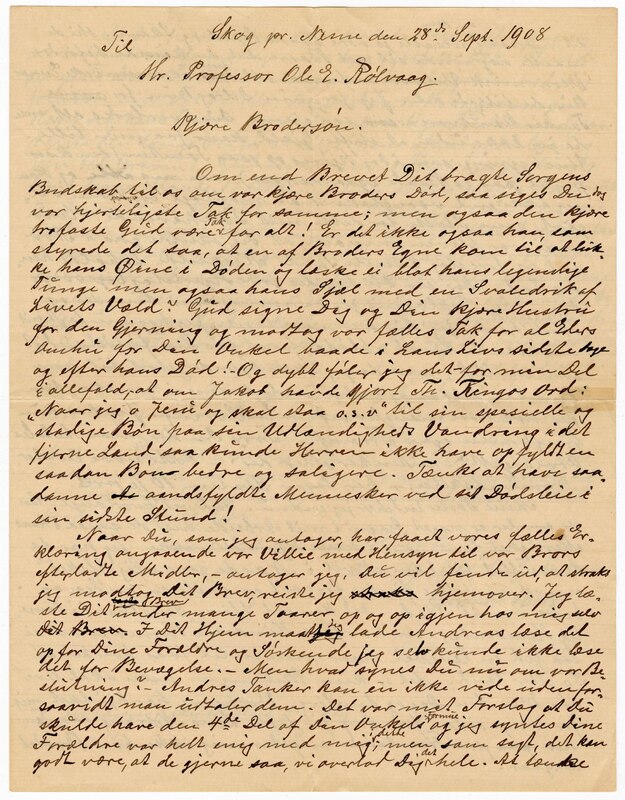 Skog pr. Namse den 28de Sept. 1908
Til
Hr. Professor Ole E. Rölvaag.
Kjære Brodersøn.
Om end Brevet Dit bragte Sorgens
Budskab til os om vor kjære Broders Død, saa siges Du dog
vor hjerteligste Tak for samme; men ogsaa den kjære
trofaste Gud være Tak for alt! Er det ikke ogsaa han, som
styrede det saa, at en af Broders Egne kom til at luk-
ke hans Øine i Døden og læske ei blot hans legemlige
Tunge men ogsaa hans Sjæl med en Svaledrik af
Livets Væld? Gud signe Dig og Din kjære Hustru
for den Gjerning og modtag vor fælles Tak for al Eders
Omhu for Din Onkel baade i hans Livs sidste Dage
og efter hans Død! – Og dybt føler jeg det for min Del
i allefald, at om Jakob havde gjort Th. Kingos Ord:
"Naar jeg o Jesu og skal staa o.s.v" til sin specielle og
stadige Bøn paa sin Udlændigheds Vandring i det
fjerne Land saa kunde Herren ikke have opfyldt en
saadan Bøn bedre og saligere. Tænk at have saa-
danne aandsfyldte Mennesker ved sit Dødsleie i
sin sidste Stund!
Naar Du, som jeg antager, har faaet vores fælles Er-
klæring angaaende vor Villie med Hensyn til vor Brors
efterladte Midler, – antager jeg, Du vil finde ud, at straks
jeg modtog Dit Brev, reiste jeg straks hjemover. Jeg læ-
ste Dit Brev under mange Taarer op og op igjen hos mig selv
Dit Brev. I Dit Hjem maatte jeg lade Andreas læse det
op for Dine Forældre og Søskende jeg selv kunde ikke læse
det for Bevægelse. – Men hvad synes Du nu om vor Be-
slutning? – Andres Tanker kan en ikke vide uden for-
saavidt man udtaler dem. Det var mit Forslag at Du
skulde have den 4de Del af Din Onkels Formue og jeg syntes Dine
Forældre var helt enig med mig i dette; men, som sagt, det kan
godt være, at de gjerne saa, vi overlod Dig det hele. At tænke